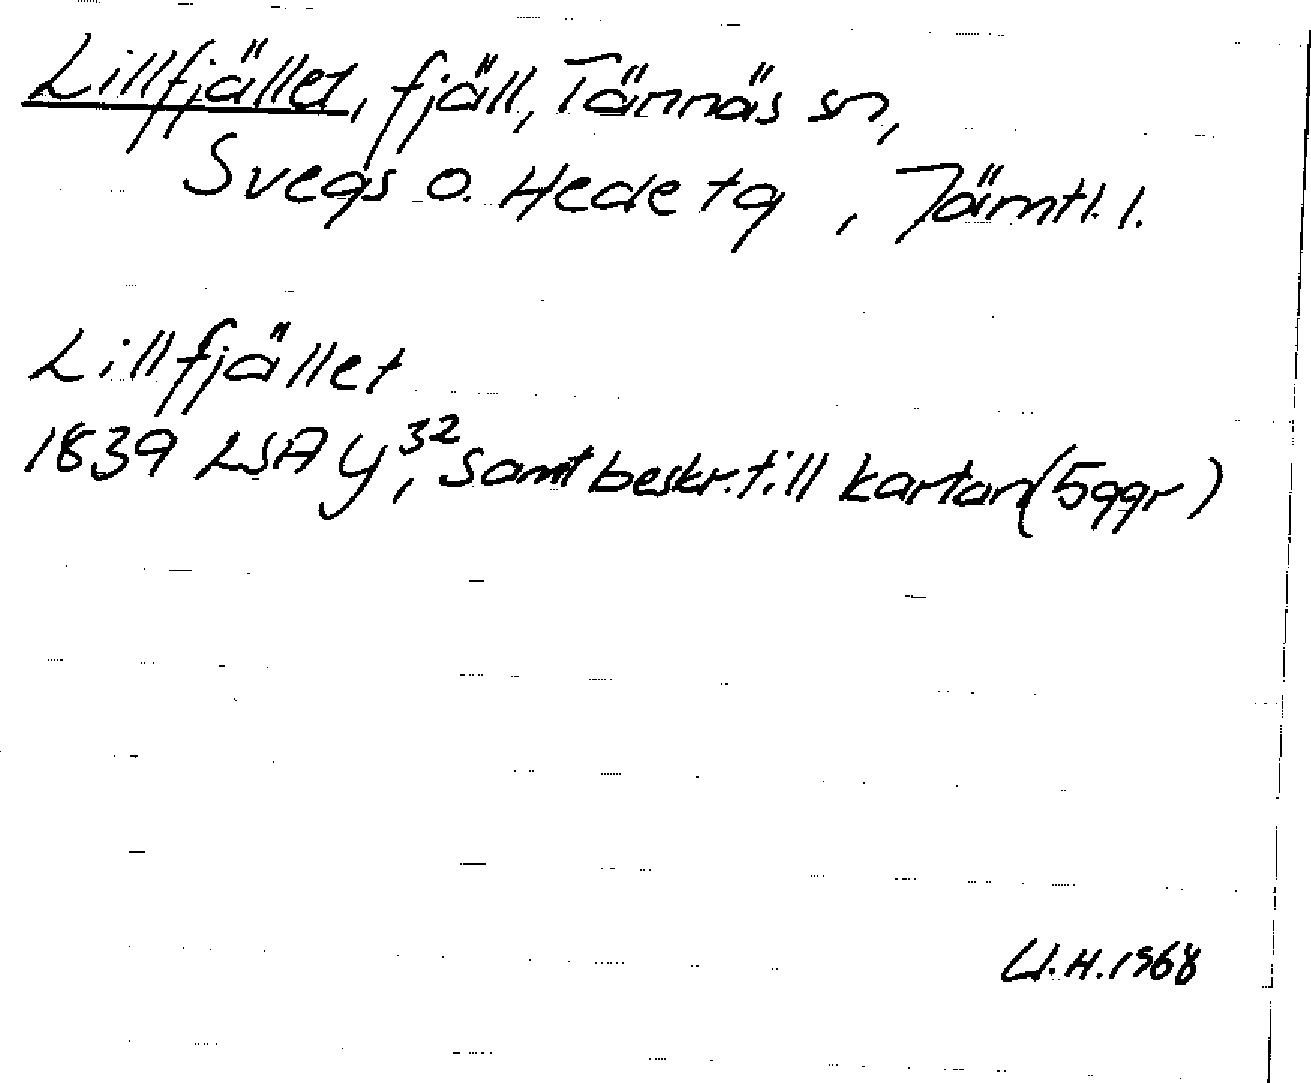 Lillfjället, fjäll, Tännäs sn,
Svegs o. Hede tg, Jämtl. l.
Lillfjället
1839 LSA Y³², samt beskr. till kartan (5 ggr)
U.H. 1968